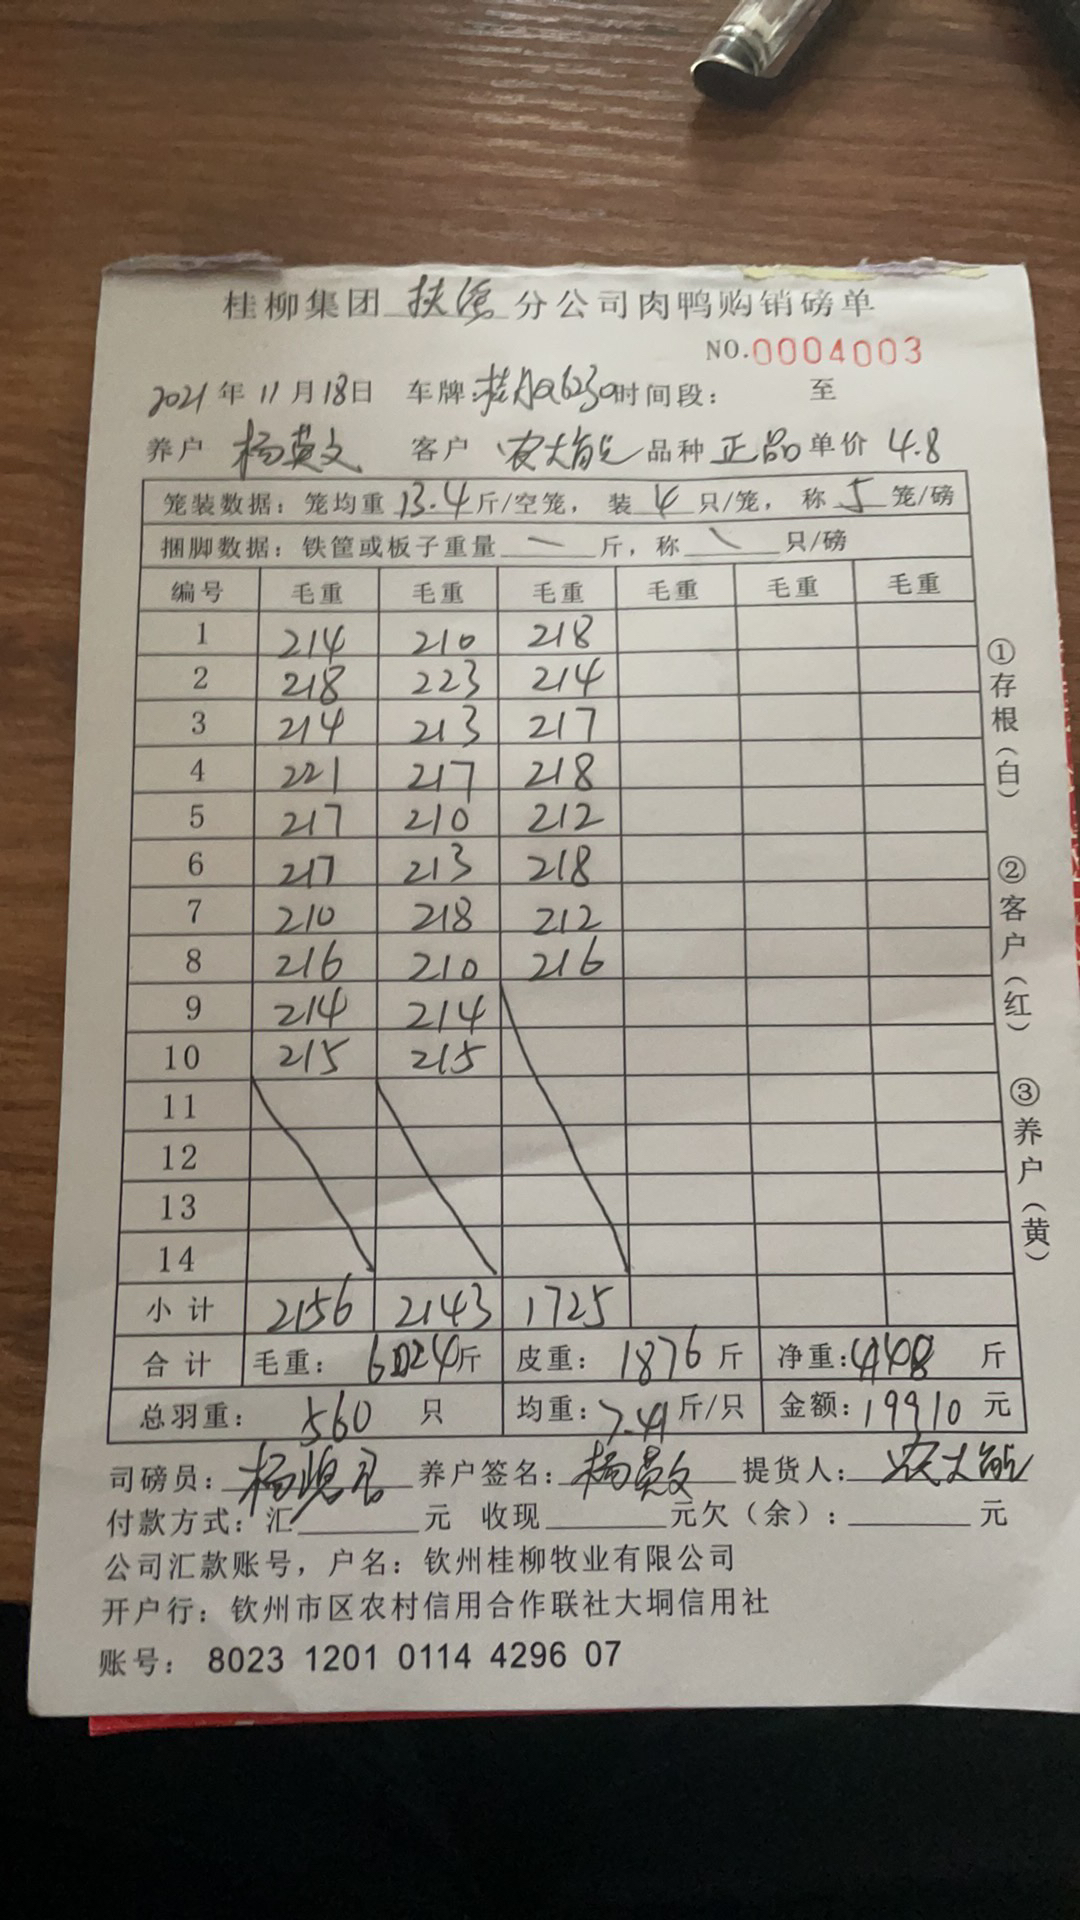 桂柳集团 扶绥 分公司肉鸭购销磅单
NO.0004003
2021 年 11 月 18 日 车牌: 时间段: 至
养户 杨英文 客户 农大能 品种 正品 单价 4.8
笼装数据: 笼均重 13.4 斤/空笼, 装 4 只/笼, 称 5 笼/磅
捆脚数据: 铁筐或板子重量 斤, 称 只/磅
编号 毛重 毛重 毛重 毛重 毛重 毛重
1 214 210 218
2 218 223 214
3 214 213 217
4 221 217 218
5 217 210 212
6 217 213 218
7 210 218 212
8 216 210 216
9 214 214
10 215 215
11
12
13
14
小计 2156 2143 1725
合计 毛重: 6024 斤 皮重: 1876 斤 净重: 4148 斤
总羽重: 560 只 均重: 7.41 斤/只 金额: 19910 元
司磅员: 养户签名: 杨英文 提货人: 农大能
付款方式: 汇 元 收现 元欠(余): 元
公司汇款账号, 户名: 钦州桂柳牧业有限公司
开户行: 钦州市区农村信用合作联社大垌信用社
账号: 8023 1201 0114 4296 07
①存根(白) ②客户(红) ③养户(黄)